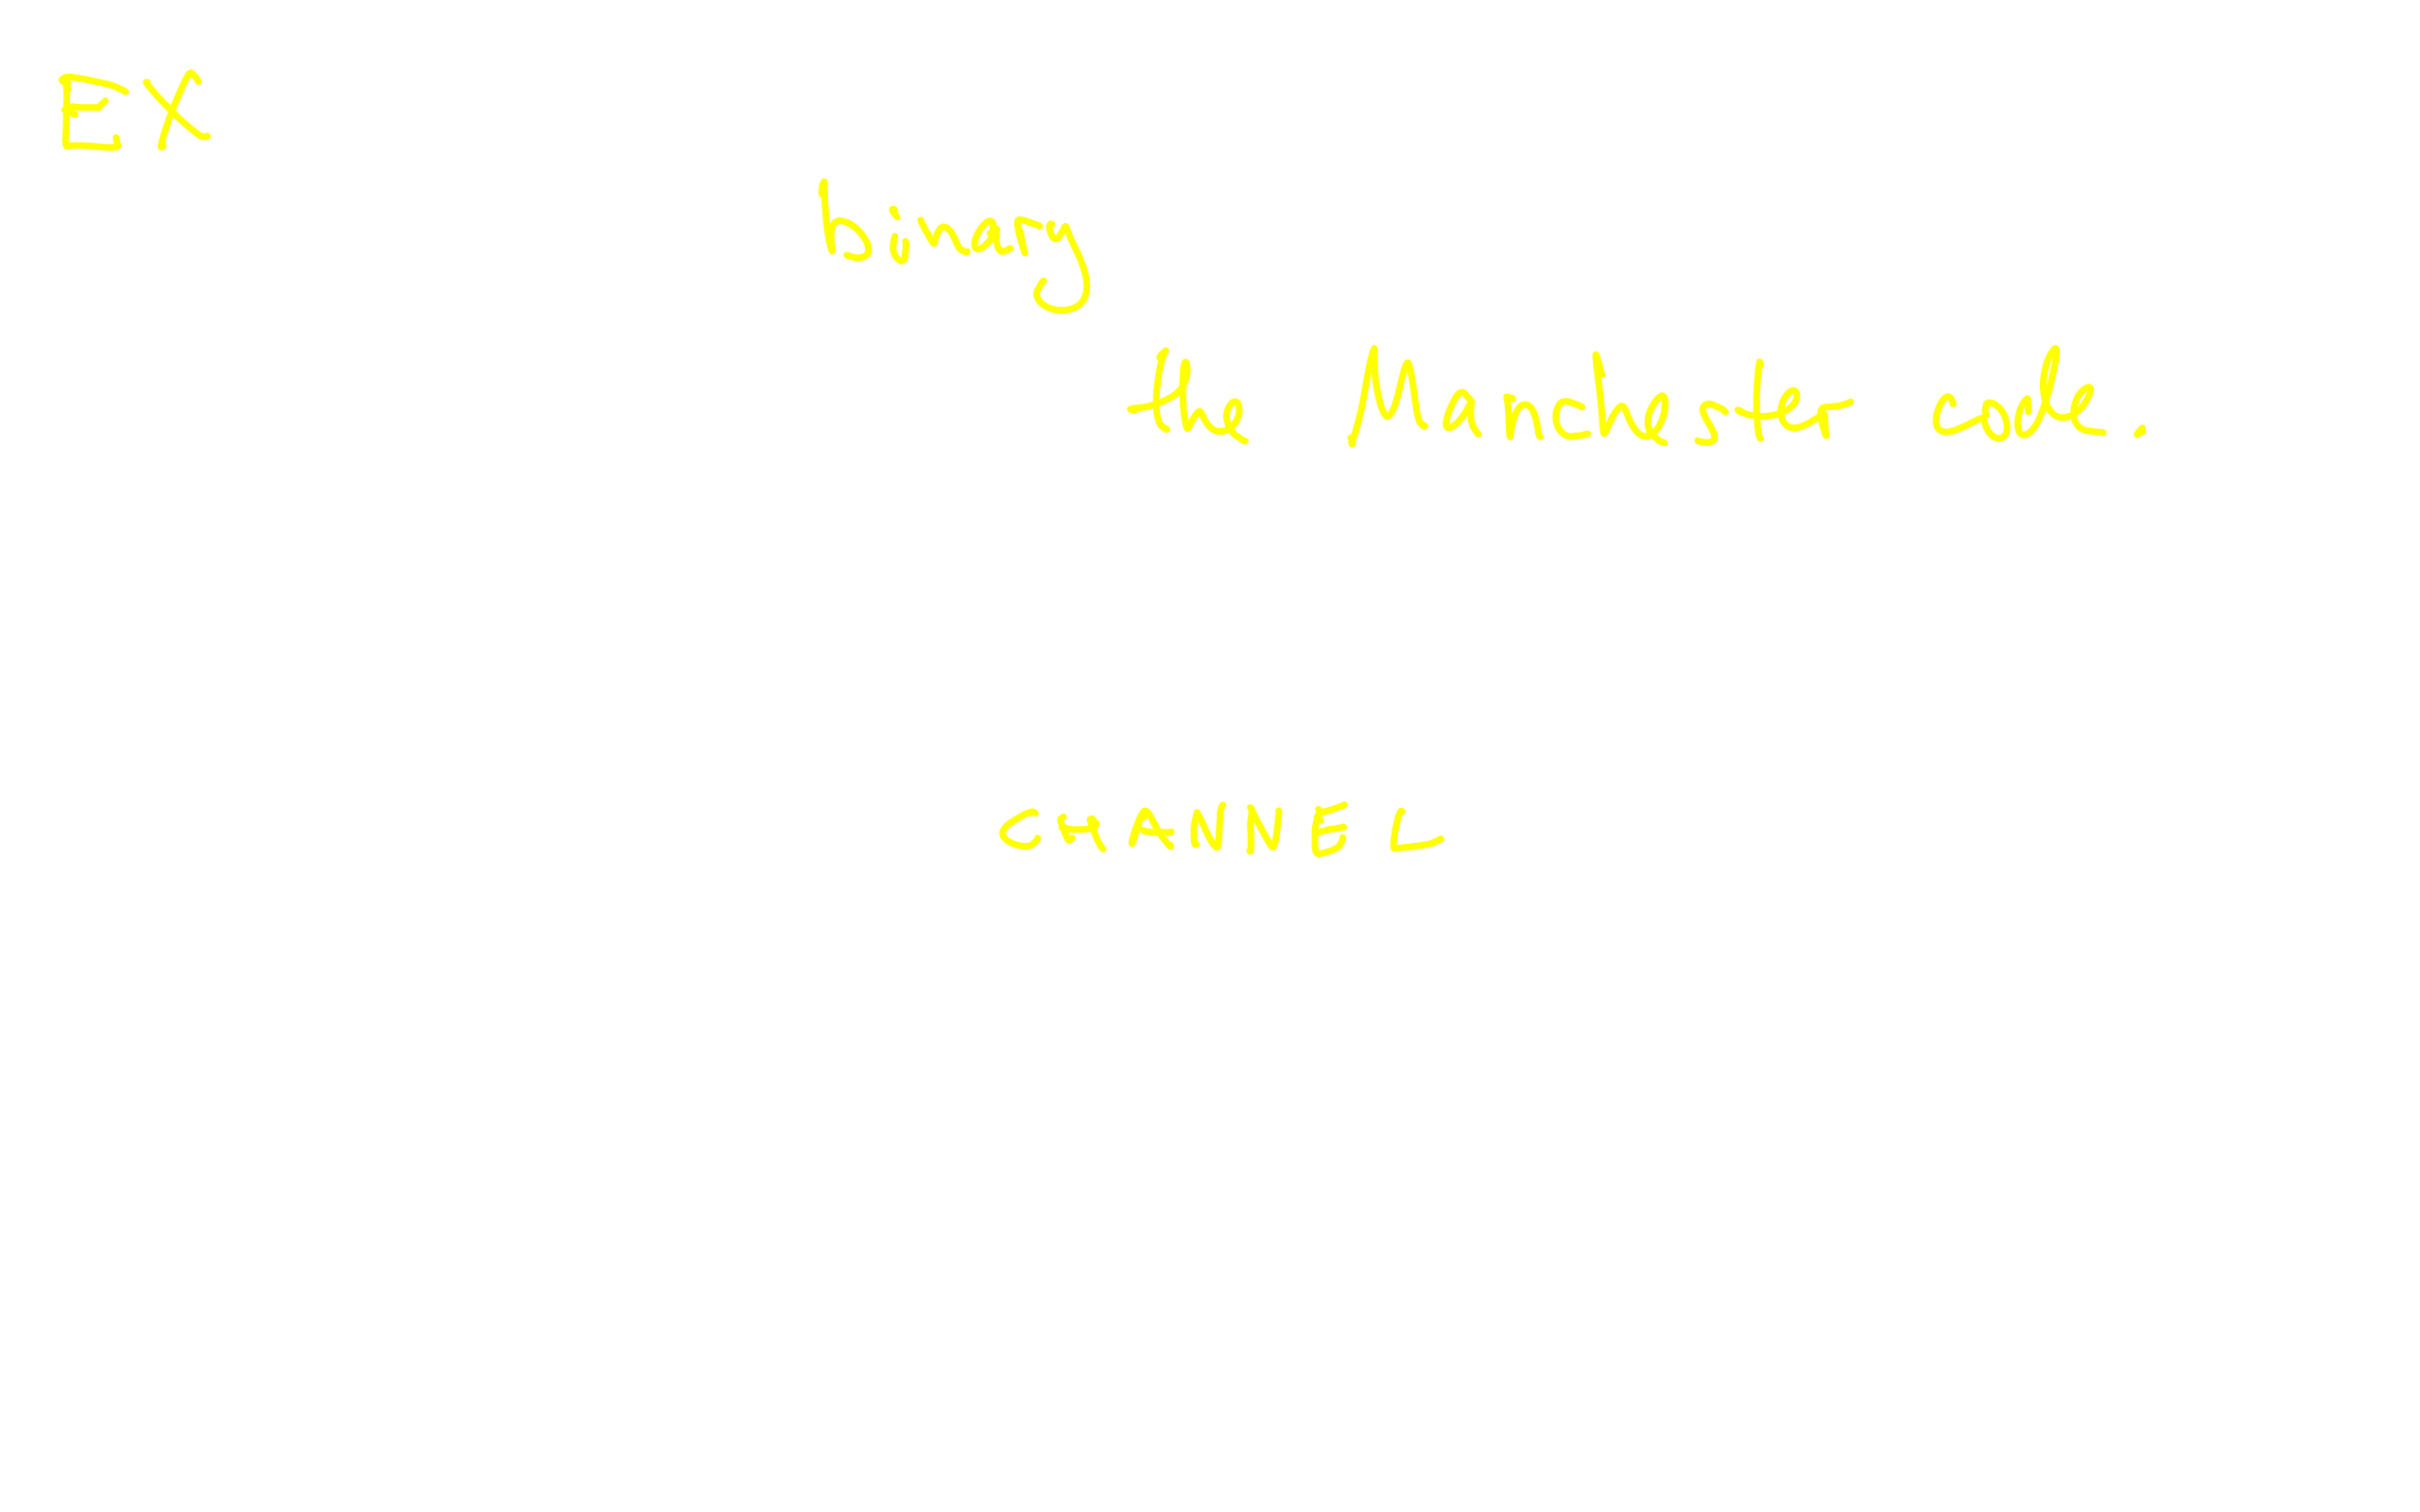 EX
binary
the Manchester code.
CHANNEL